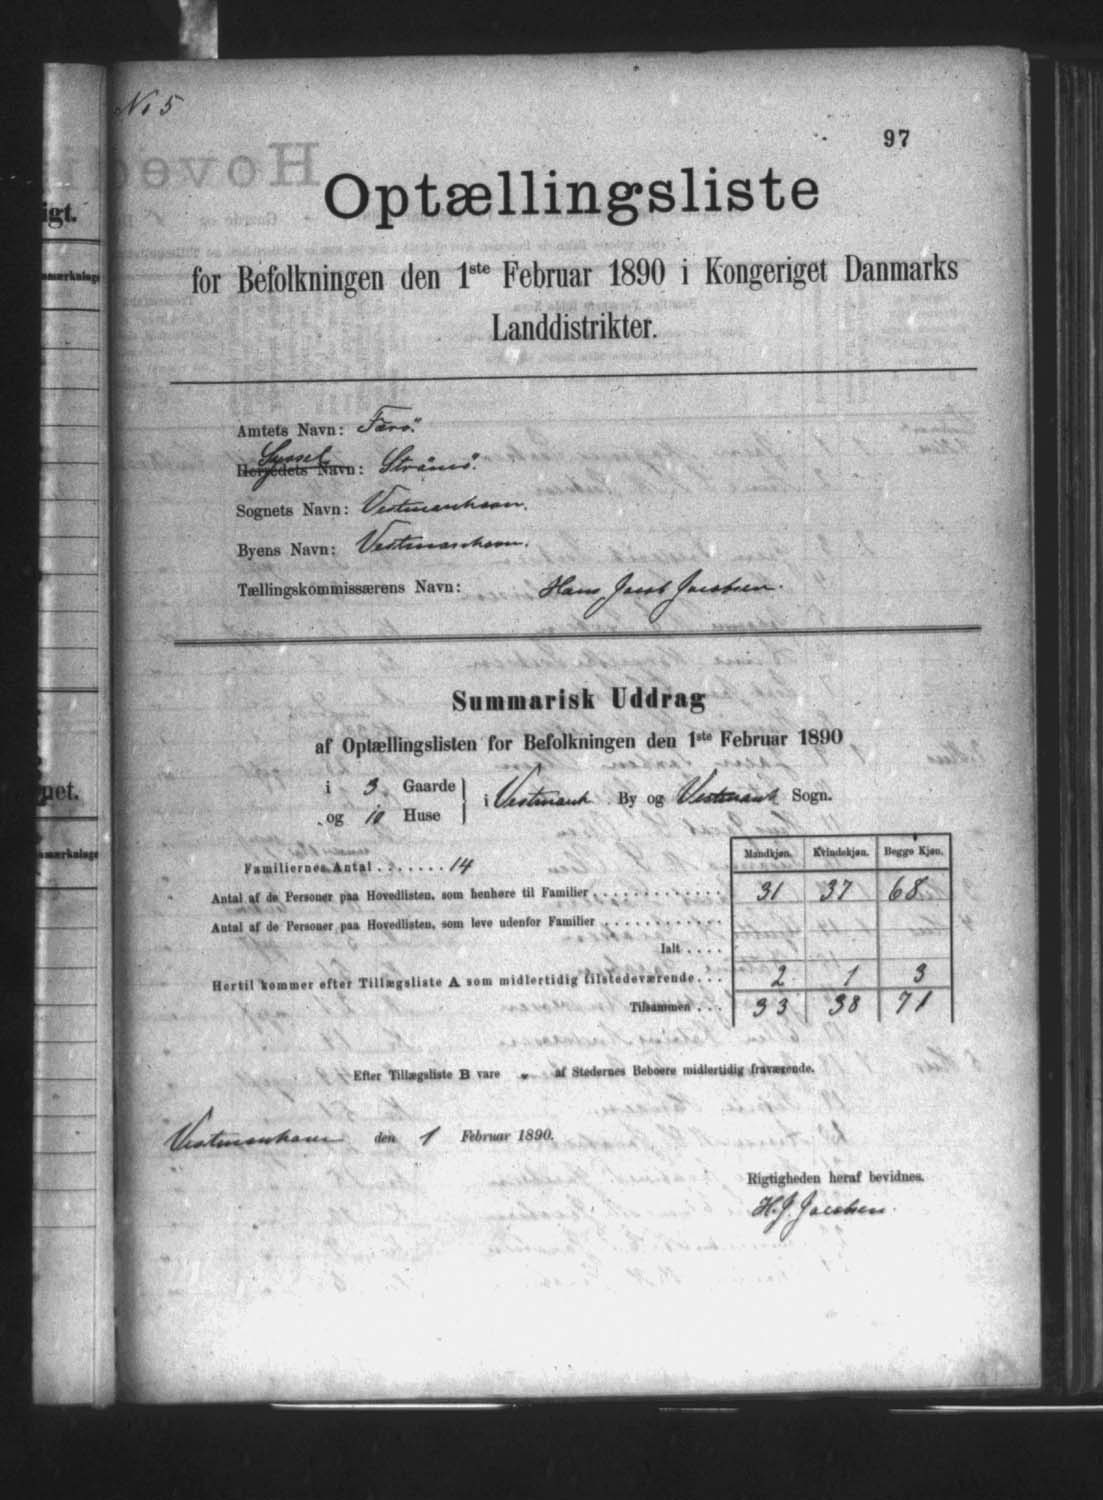 No 5
97
Optællingsliste
for Befolkningen den 1ste Februar 1890 i Kongeriget Danmarks
Landdistrikter.
Amtets Navn: Færö.
Syssel
Herredets Navn: Strömö.
Sognets Navn: Vestmanhavn.
Byens Navn: Vestmanhavn.
Tællingskommissærens Navn: Hans Jacob Jacobsen.
Summarisk Uddrag
af Optællingslisten for Befolkningen den 1ste Februar 1890
i 3 Gaarde
og 10 Huse
i Vestmanh By og Vestmanh Sogn.
Mandkjøn. Kvindekjøn. Begge Kjøn.
Familiernes Antal . . . . . . . . 14
Antal af de Personer paa Hovedlisten, som henhøre til Familier . . . . . . . . . . . . . 31 37 68
Antal af de Personer paa Hovedlisten, som leve udenfor Familier . . . . . . . . . . . .
Ialt . . . .
Hertil kommer efter Tillægsliste A som midlertidig tilstedeværende . . . 2 1 3
Tilsammen . . . 33 38 71
Efter Tillægsliste B vare " af Stedernes Beboere midlertidig fraværende.
Vestmanhavn den 1 Februar 1890.
Rigtigheden heraf bevidnes.
H. J. Jacobsen.